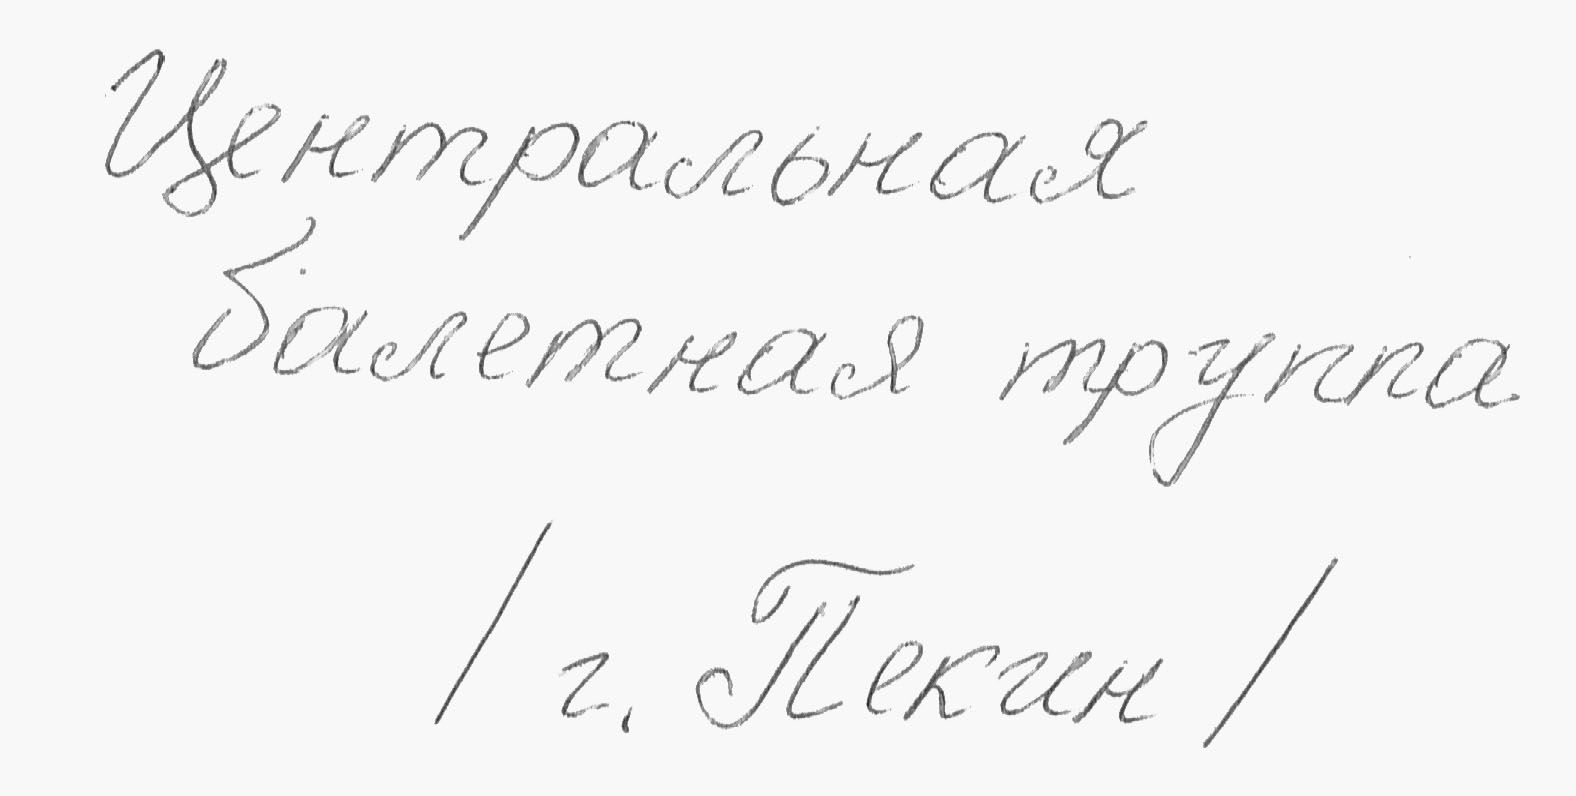 Центральная
балетная труппа
/ г. Пекин /